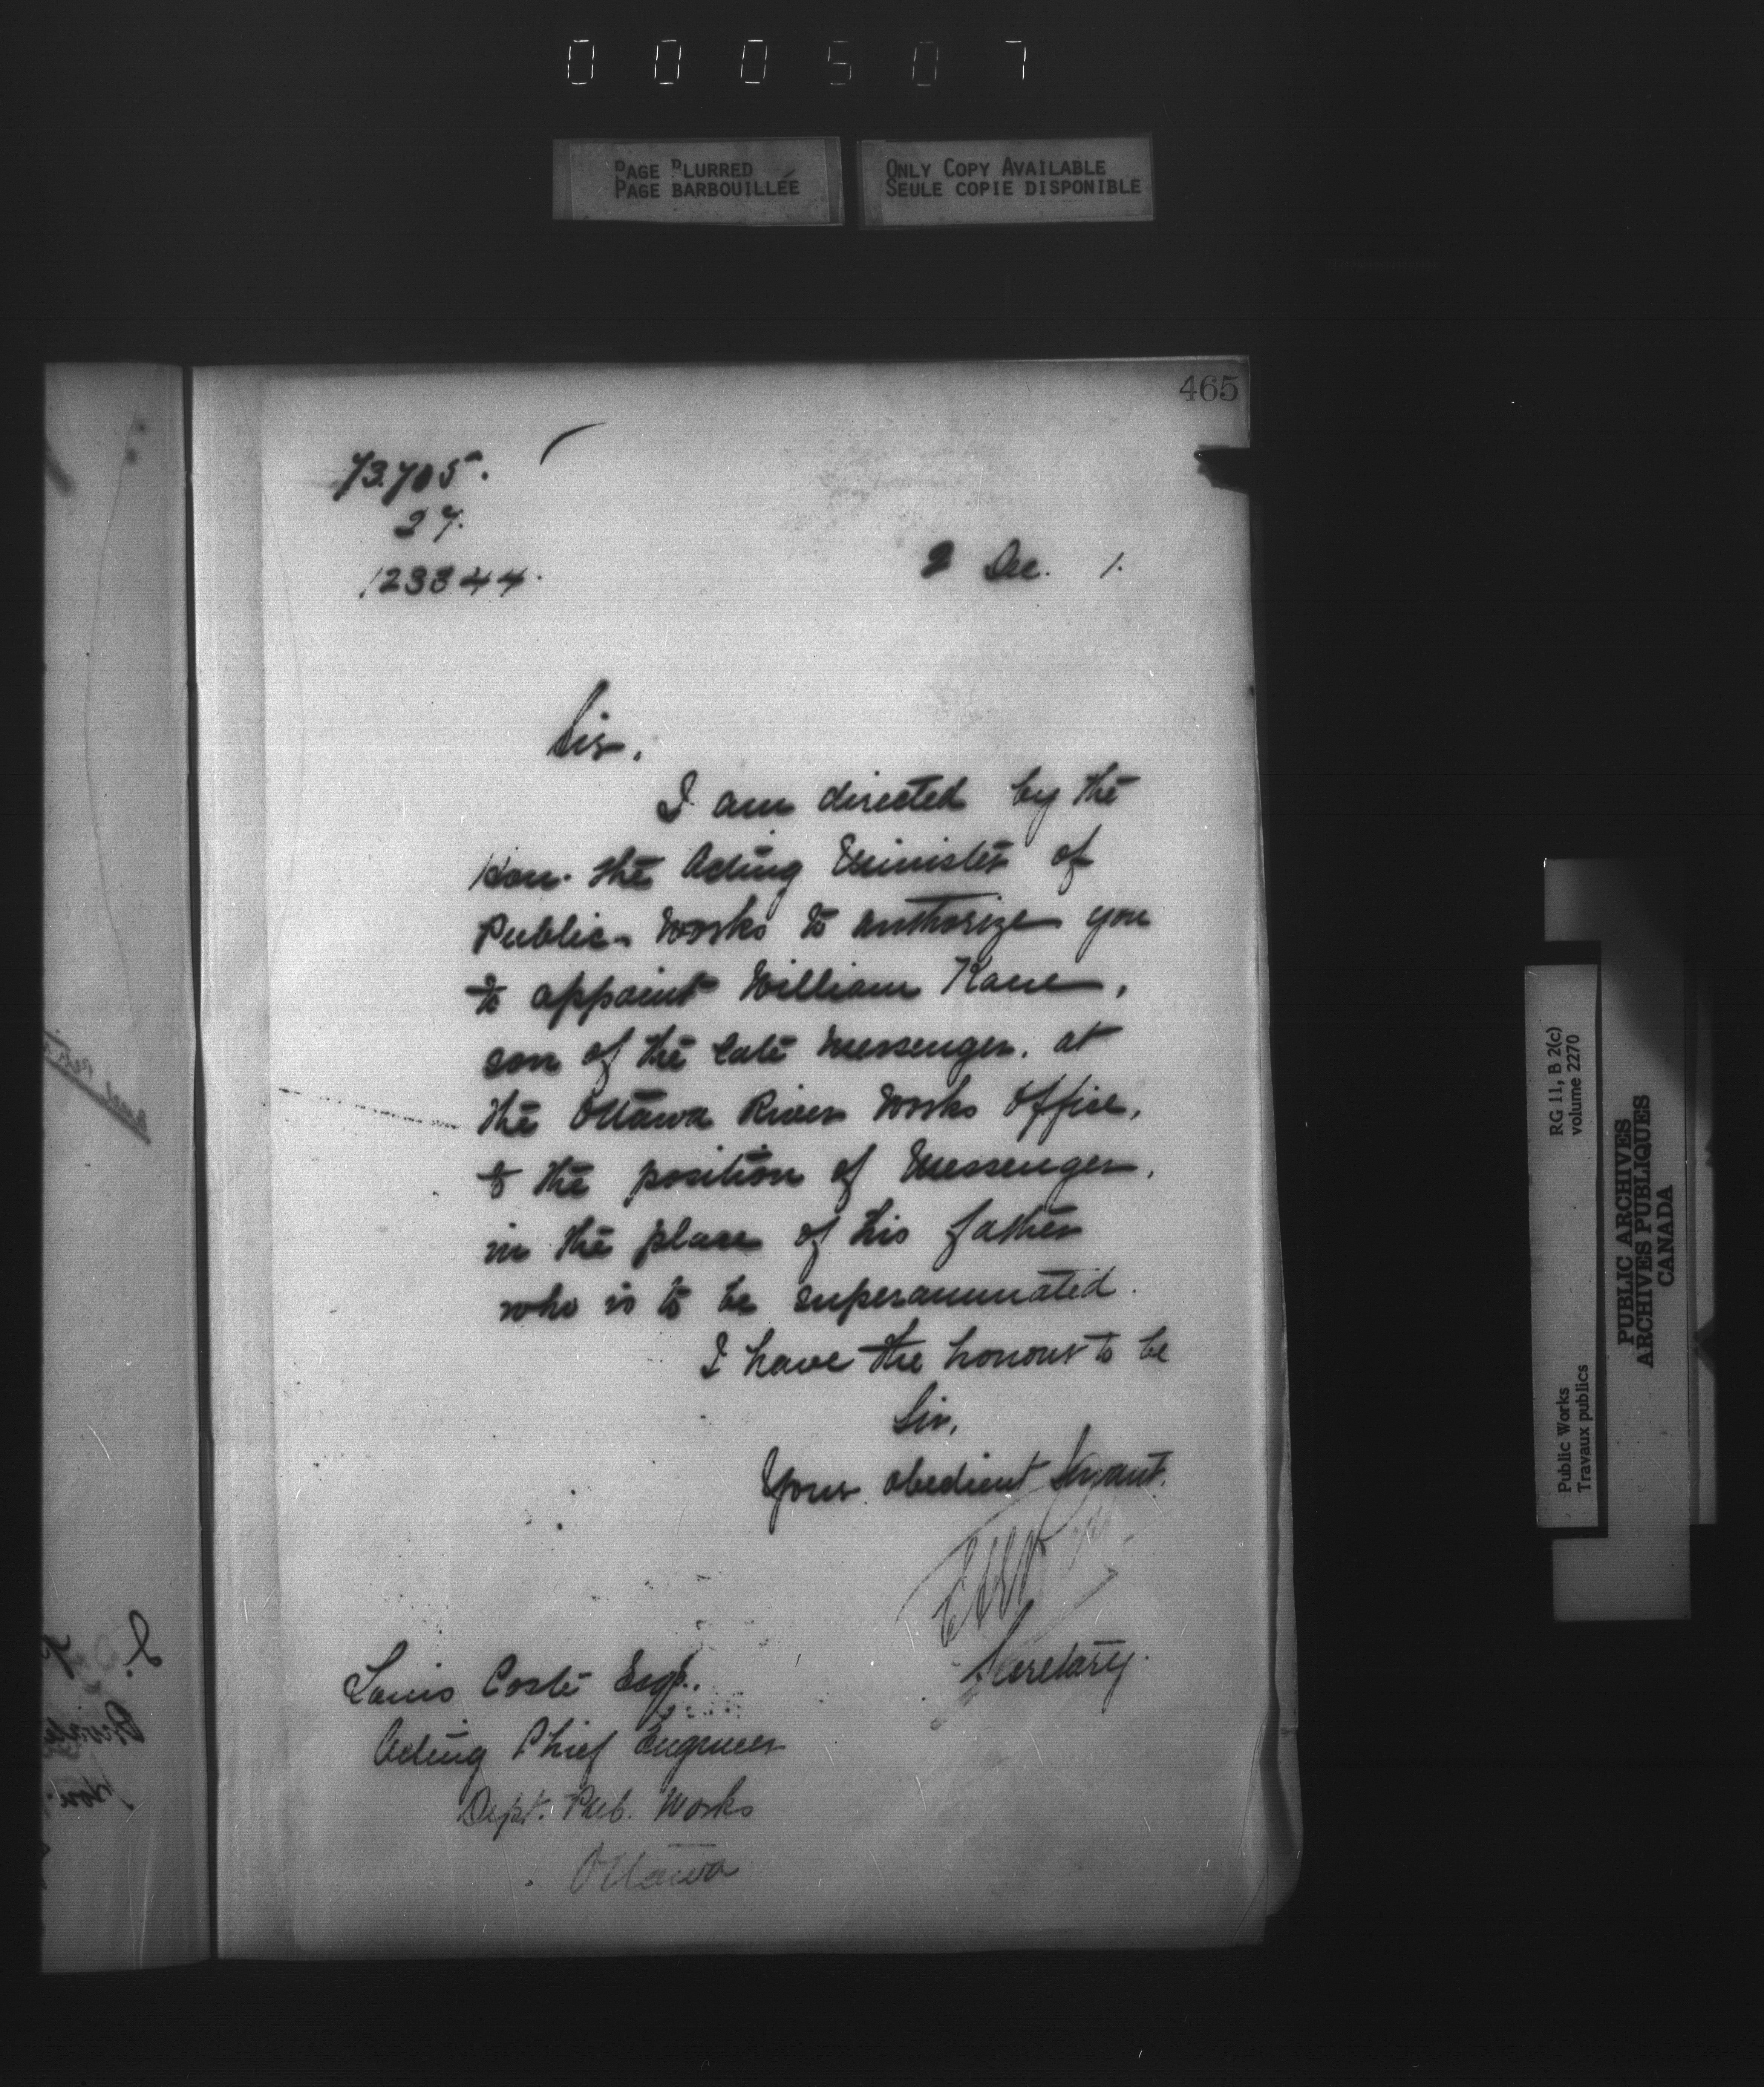 000507
PAGE BLURRED
PAGE BARBOUILLÉE
ONLY COPY AVAILABLE
SEULE COPIE DISPONIBLE
465
73.705.
27.
123344.
2 Dec. 1.
Sir,
I am directed by the
Hon. the Acting Minister of
Public Works to authorize you
to appoint William Kane,
son of the late Messenger, at
the Ottawa River Works Office,
to the position of Messenger,
in the place of his father
who is to be superannuated.
I have the honour to be
Sir,
Your obedient Servant.
Secretary.
Louis Coste Esq.
Acting Chief Engineer
Dept. Pub. Works
Ottawa
RG 11, B 2(c)
volume 2270
Public Works
Travaux publics
PUBLIC ARCHIVES
ARCHIVES PUBLIQUES
CANADA